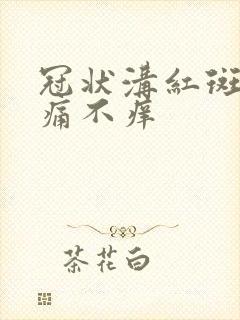 冠状溝紅斑
痛不痒
茶花白